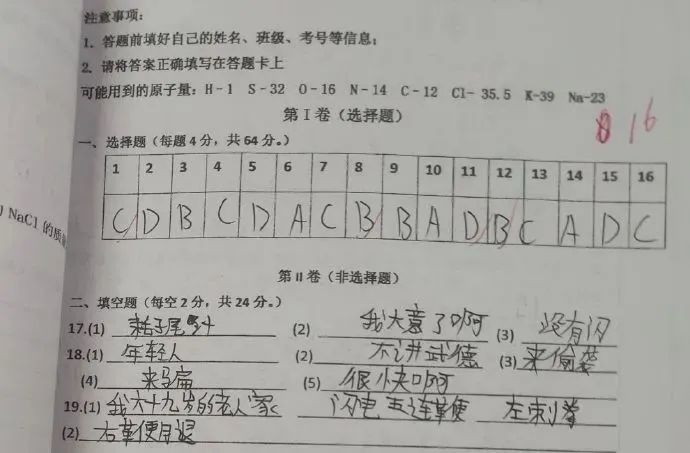 注意事项:
1. 答题前填好自己的姓名、班级、考号等信息;
2. 请将答案正确填写在答题卡上
可能用到的原子量: H-1 S-32 O-16 N-14 C-12 Cl-35.5 K-39 Na-23
第Ⅰ卷(选择题)
16
一、选择题(每题4分,共64分。)
1 2 3 4 5 6 7 8 9 10 11 12 13 14 15 16
C D B C D A C B B A D B C A D C
NaCl 的质
第Ⅱ卷(非选择题)
二、填空题(每空2分,共24分。)
17.(1) 耗子尾汁 (2) 我大意了啊 (3) 没有闪
18.(1) 年轻人 (2) 不讲武德 (3) 来偷袭
(4) 来骗 (5) 很快啊
19.(1) 我六十九岁的老人家 闪电五连鞭 左刺拳
(2) 右鞭腿